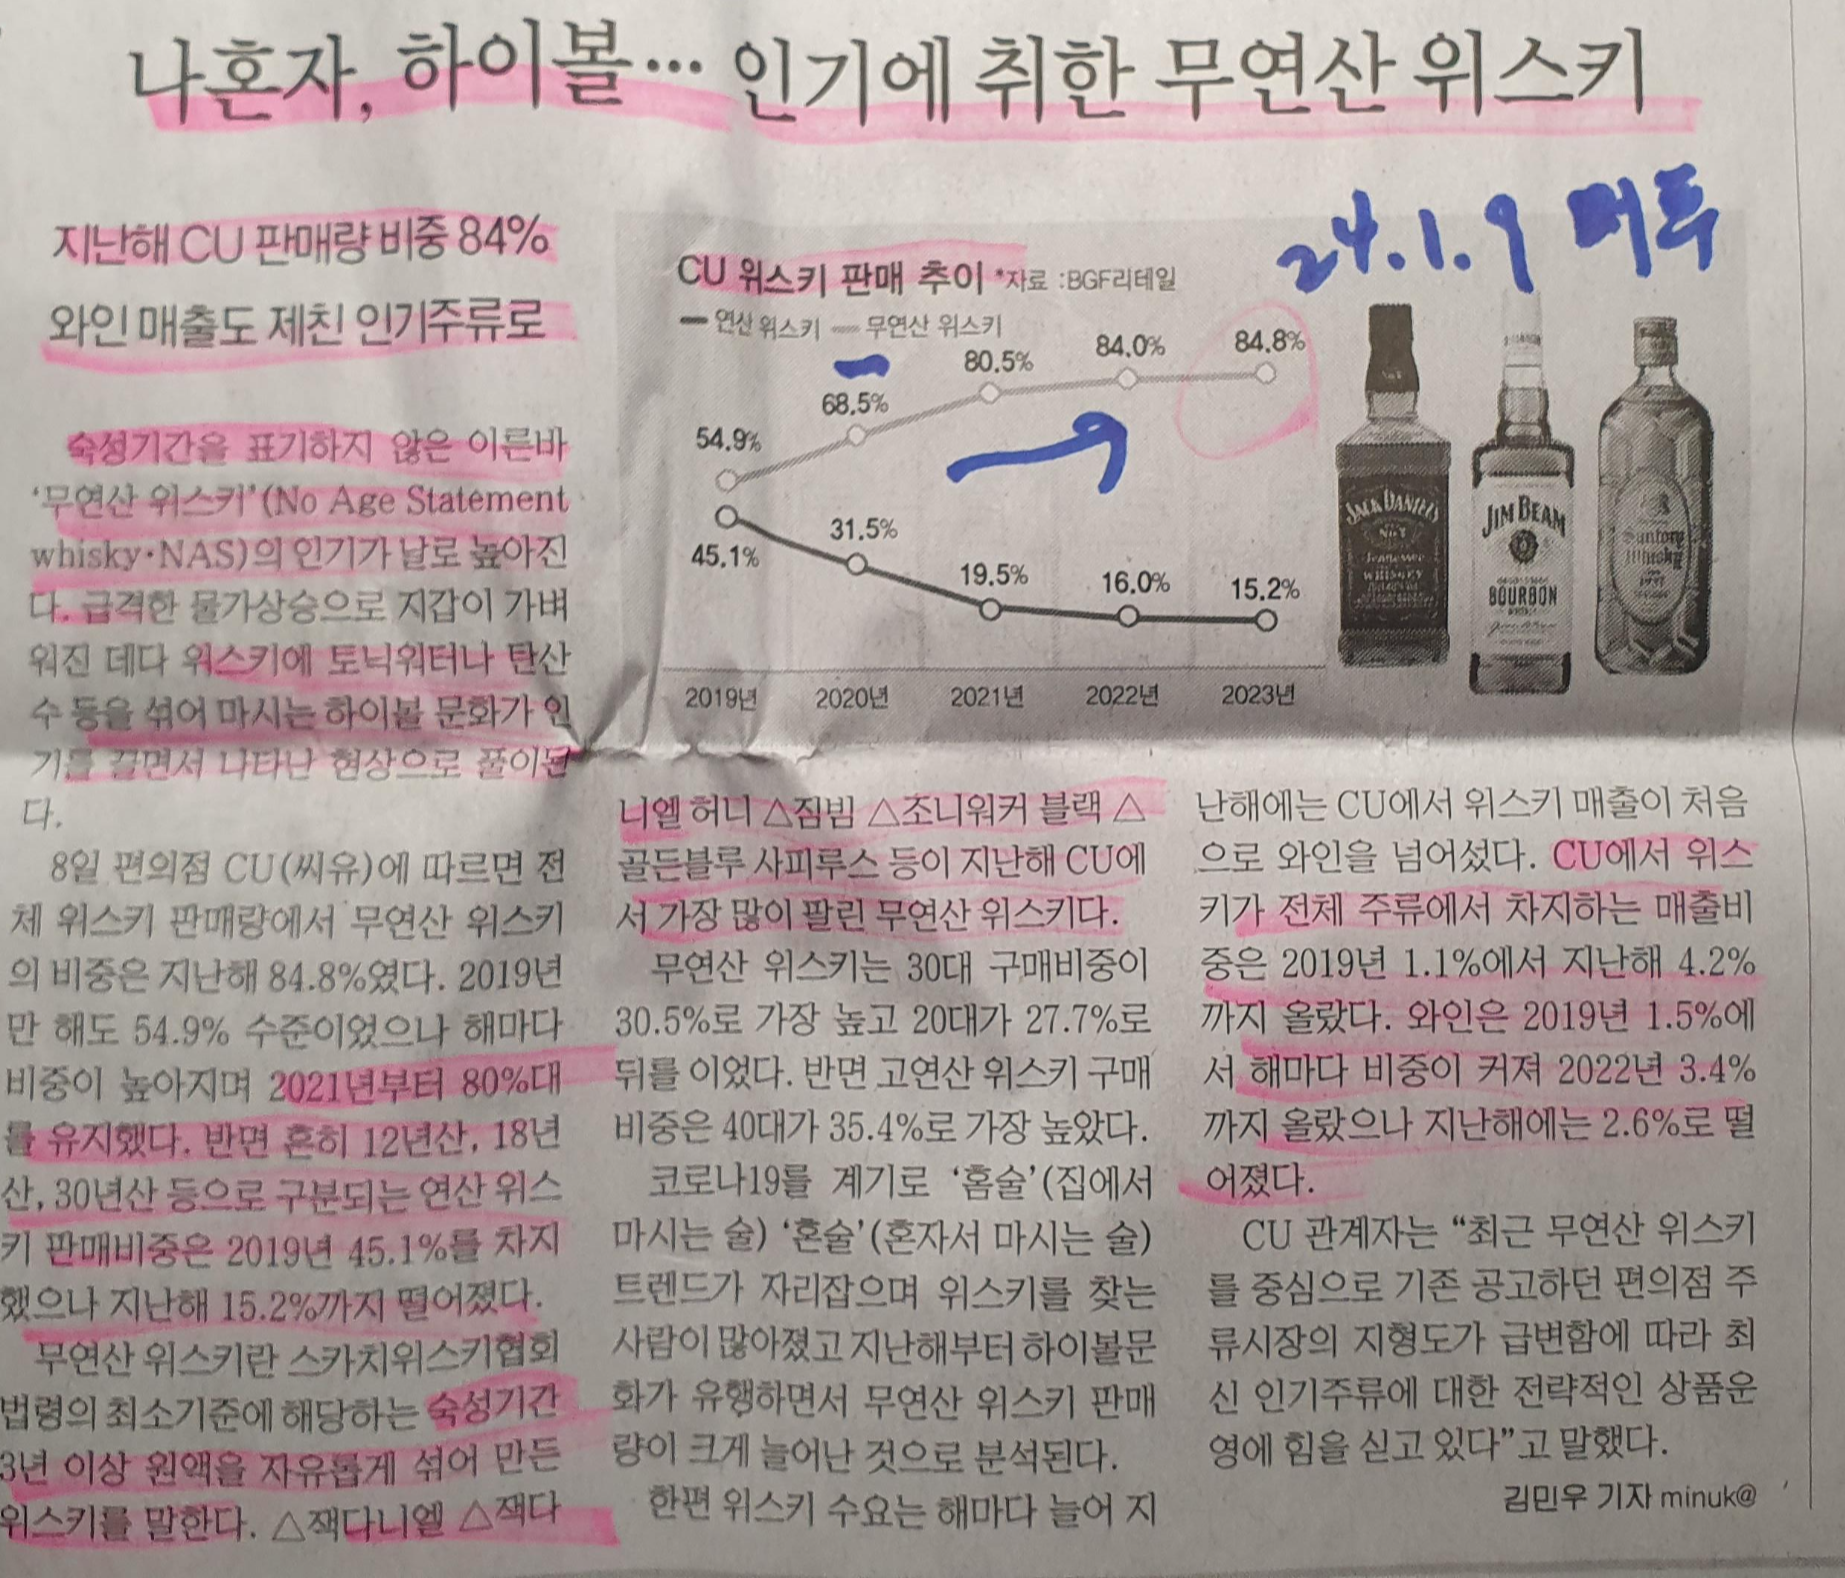 나혼자, 하이볼… 인기에 취한 무연산 위스키
지난해 CU 판매량 비중 84%
와인 매출도 제친 인기주류로
24.1.9 머투
CU 위스키 판매 추이 *자료 :BGF리테일
연산 위스키 무연산 위스키
54.9% 68.5% 80.5% 84.0% 84.8%
45.1% 31.5% 19.5% 16.0% 15.2%
2019년 2020년 2021년 2022년 2023년
JACK DANIEL'S
Tennessee
WHISKEY
JIM BEAM
BOURBON
Suntory
Whisky
숙성기간을 표기하지 않은 이른바
‘무연산 위스키’(No Age Statement
whisky·NAS)의 인기가 날로 높아진
다. 급격한 물가상승으로 지갑이 가벼
워진 데다 위스키에 토닉워터나 탄산
수 등을 섞어 마시는 하이볼 문화가 인
기를 끌면서 나타난 현상으로 풀이된
다.
8일 편의점 CU(씨유)에 따르면 전
체 위스키 판매량에서 무연산 위스키
의 비중은 지난해 84.8%였다. 2019년
만 해도 54.9% 수준이었으나 해마다
비중이 높아지며 2021년부터 80%대
를 유지했다. 반면 흔히 12년산, 18년
산, 30년산 등으로 구분되는 연산 위스
키 판매비중은 2019년 45.1%를 차지
했으나 지난해 15.2%까지 떨어졌다.
무연산 위스키란 스카치위스키협회
법령의 최소기준에 해당하는 숙성기간
3년 이상 원액을 자유롭게 섞어 만든
위스키를 말한다. △잭다니엘 △잭다
니엘 허니 △짐빔 △조니워커 블랙 △
골든블루 사피루스 등이 지난해 CU에
서 가장 많이 팔린 무연산 위스키다.
무연산 위스키는 30대 구매비중이
30.5%로 가장 높고 20대가 27.7%로
뒤를 이었다. 반면 고연산 위스키 구매
비중은 40대가 35.4%로 가장 높았다.
코로나19를 계기로 ‘홈술’(집에서
마시는 술) ‘혼술’(혼자서 마시는 술)
트렌드가 자리잡으며 위스키를 찾는
사람이 많아졌고 지난해부터 하이볼문
화가 유행하면서 무연산 위스키 판매
량이 크게 늘어난 것으로 분석된다.
한편 위스키 수요는 해마다 늘어 지
난해에는 CU에서 위스키 매출이 처음
으로 와인을 넘어섰다. CU에서 위스
키가 전체 주류에서 차지하는 매출비
중은 2019년 1.1%에서 지난해 4.2%
까지 올랐다. 와인은 2019년 1.5%에
서 해마다 비중이 커져 2022년 3.4%
까지 올랐으나 지난해에는 2.6%로 떨
어졌다.
CU 관계자는 “최근 무연산 위스키
를 중심으로 기존 공고하던 편의점 주
류시장의 지형도가 급변함에 따라 최
신 인기주류에 대한 전략적인 상품운
영에 힘을 싣고 있다”고 말했다.
김민우 기자 minuk@